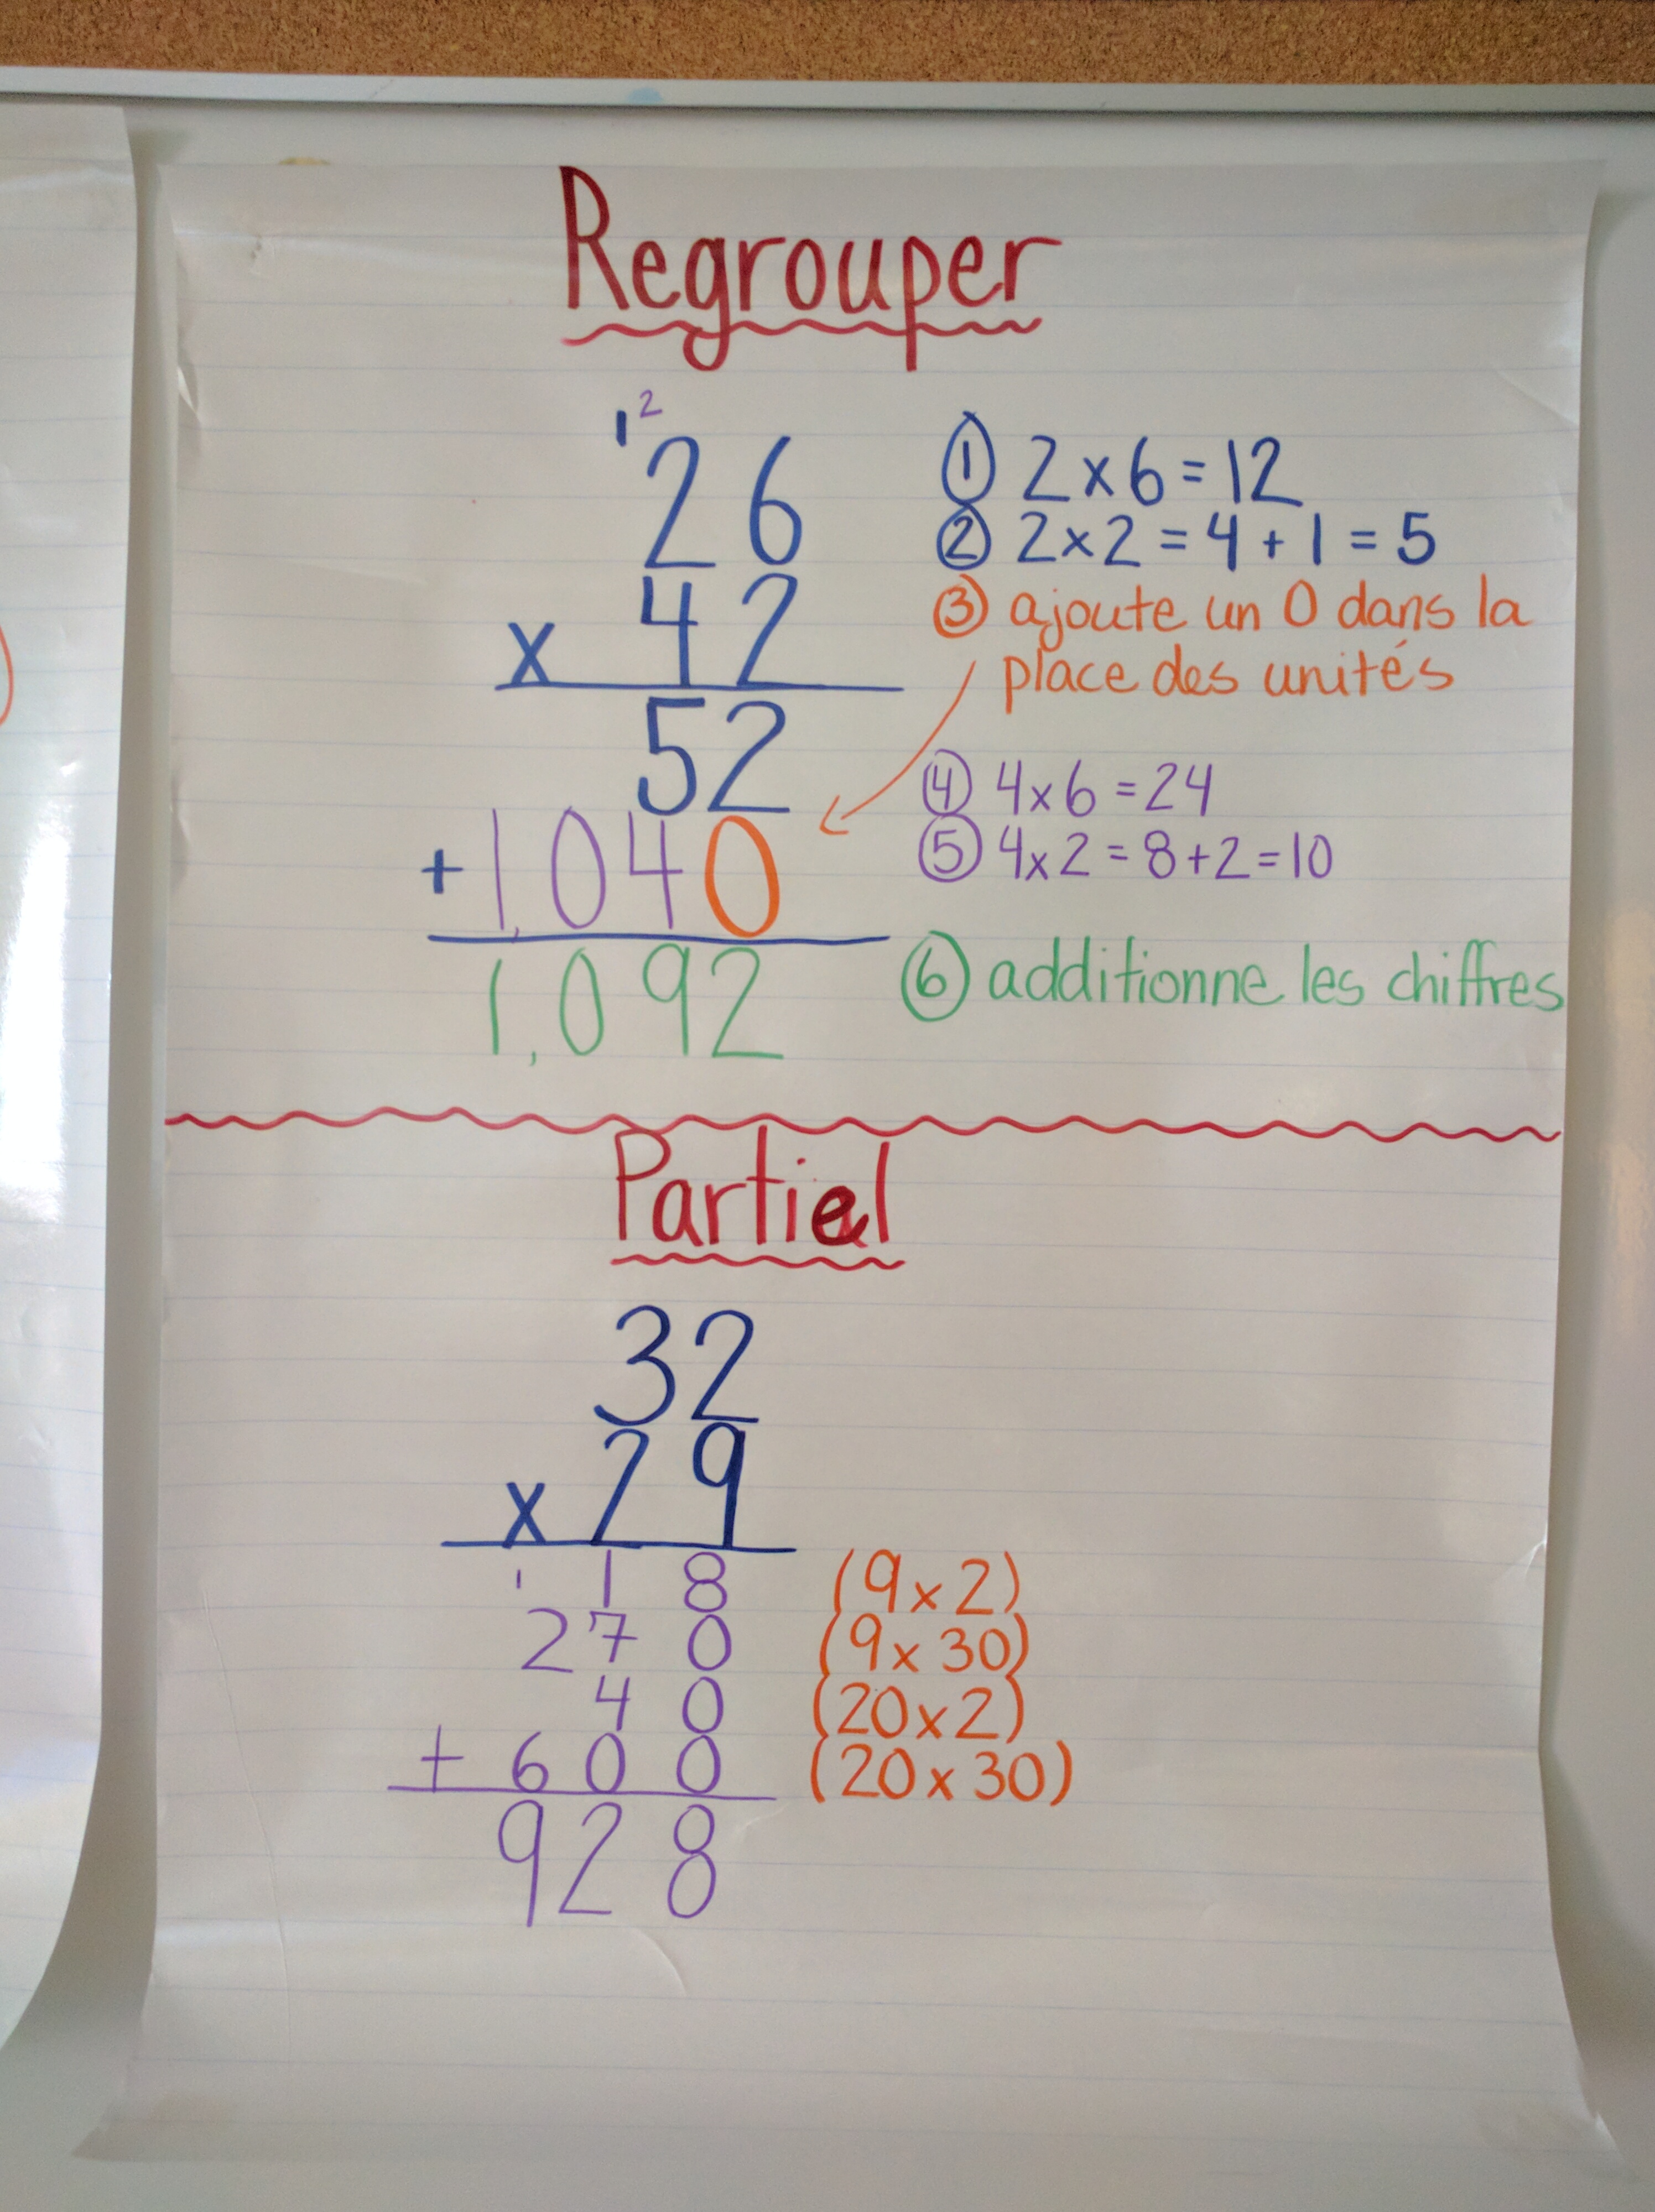 Regrouper
1 2
26
x 42
52
+ 1,040
1,092
① 2 x 6 = 12
② 2 x 2 = 4 + 1 = 5
③ ajoute un 0 dans la
place des unités
④ 4 x 6 = 24
⑤ 4 x 2 = 8 + 2 = 10
⑥ additionne les chiffres
Partiel
32
x 29
1
18 (9 x 2)
270 (9 x 30)
40 (20 x 2)
+ 600 (20 x 30)
928